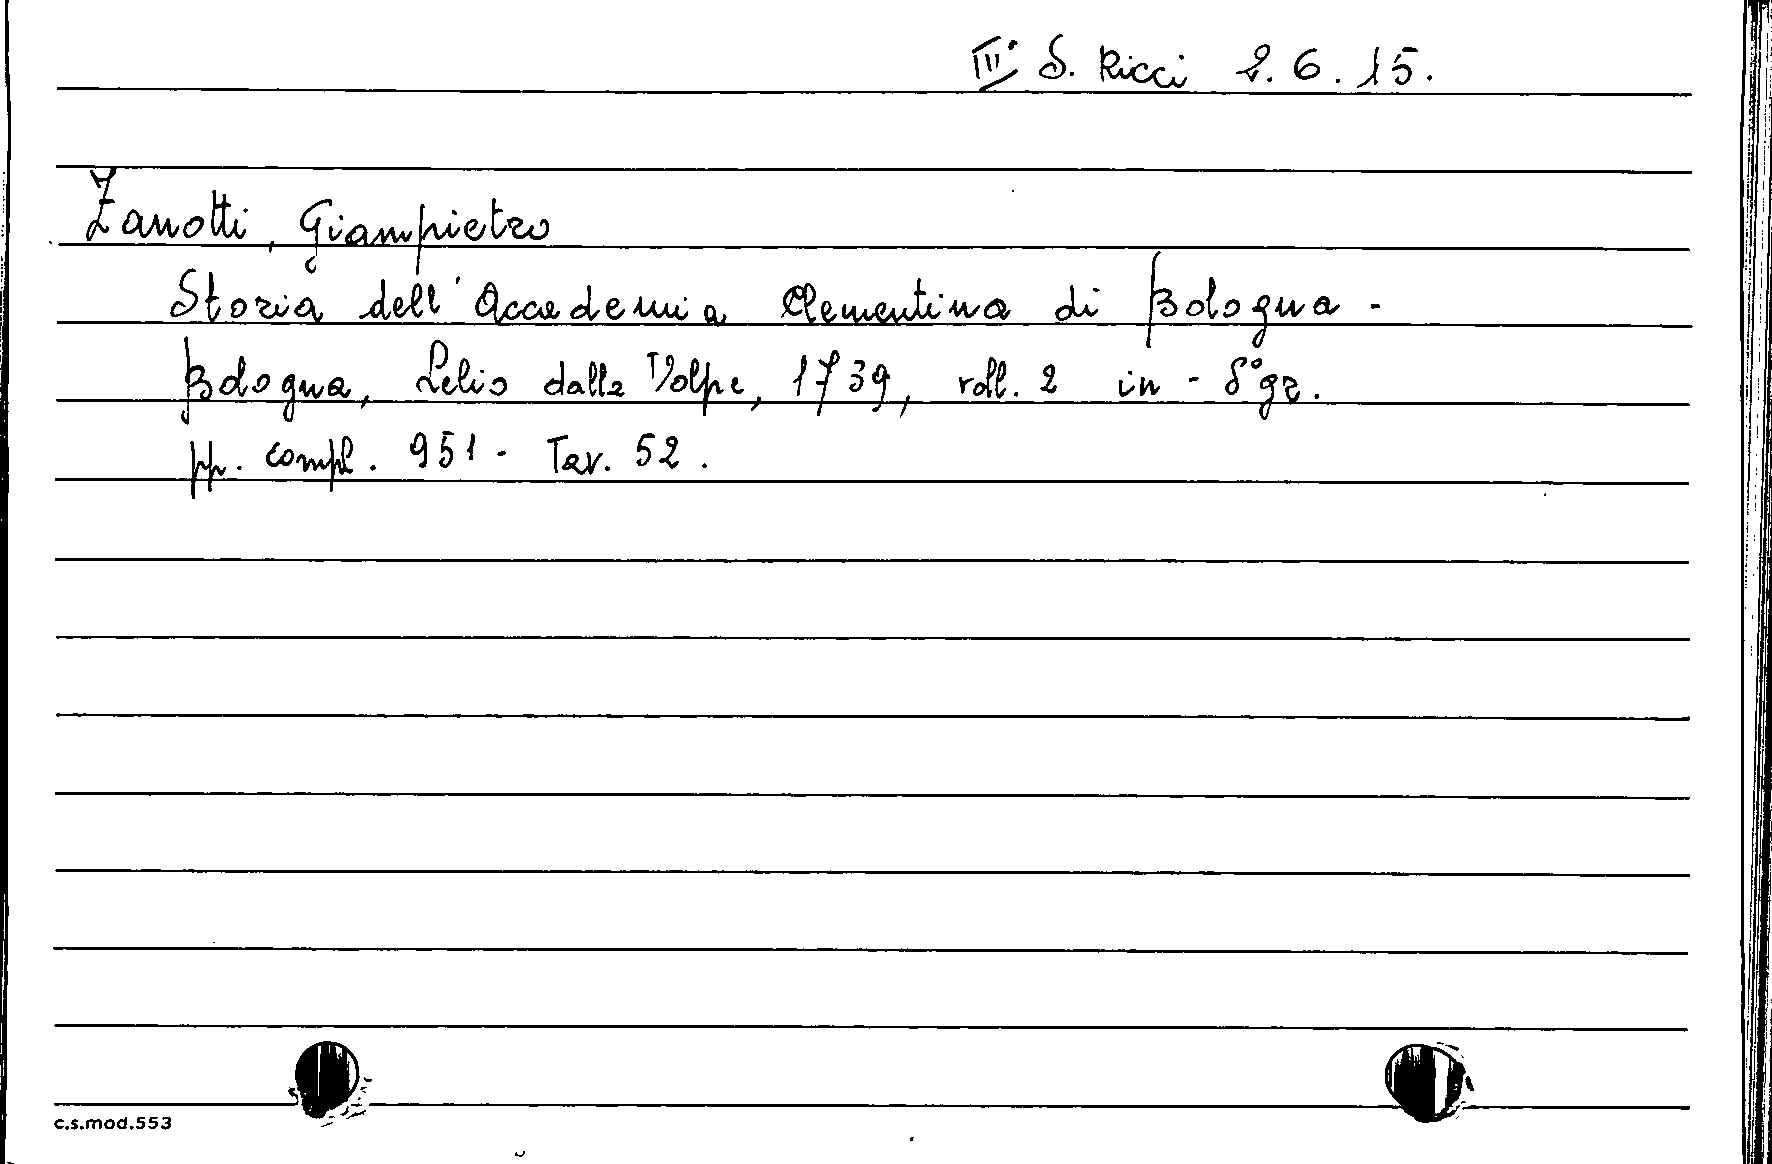 III. S. Ricci 2. 6. 15.
Zanotti, Giampietro
Storia dell'Accademia Clementina di Bologna -
Bologna, Lelio dalla Volpe, 1739, voll. 2 in - 8° gr.
pp. compl. 951 - Tav. 52.
c.s.mod.553